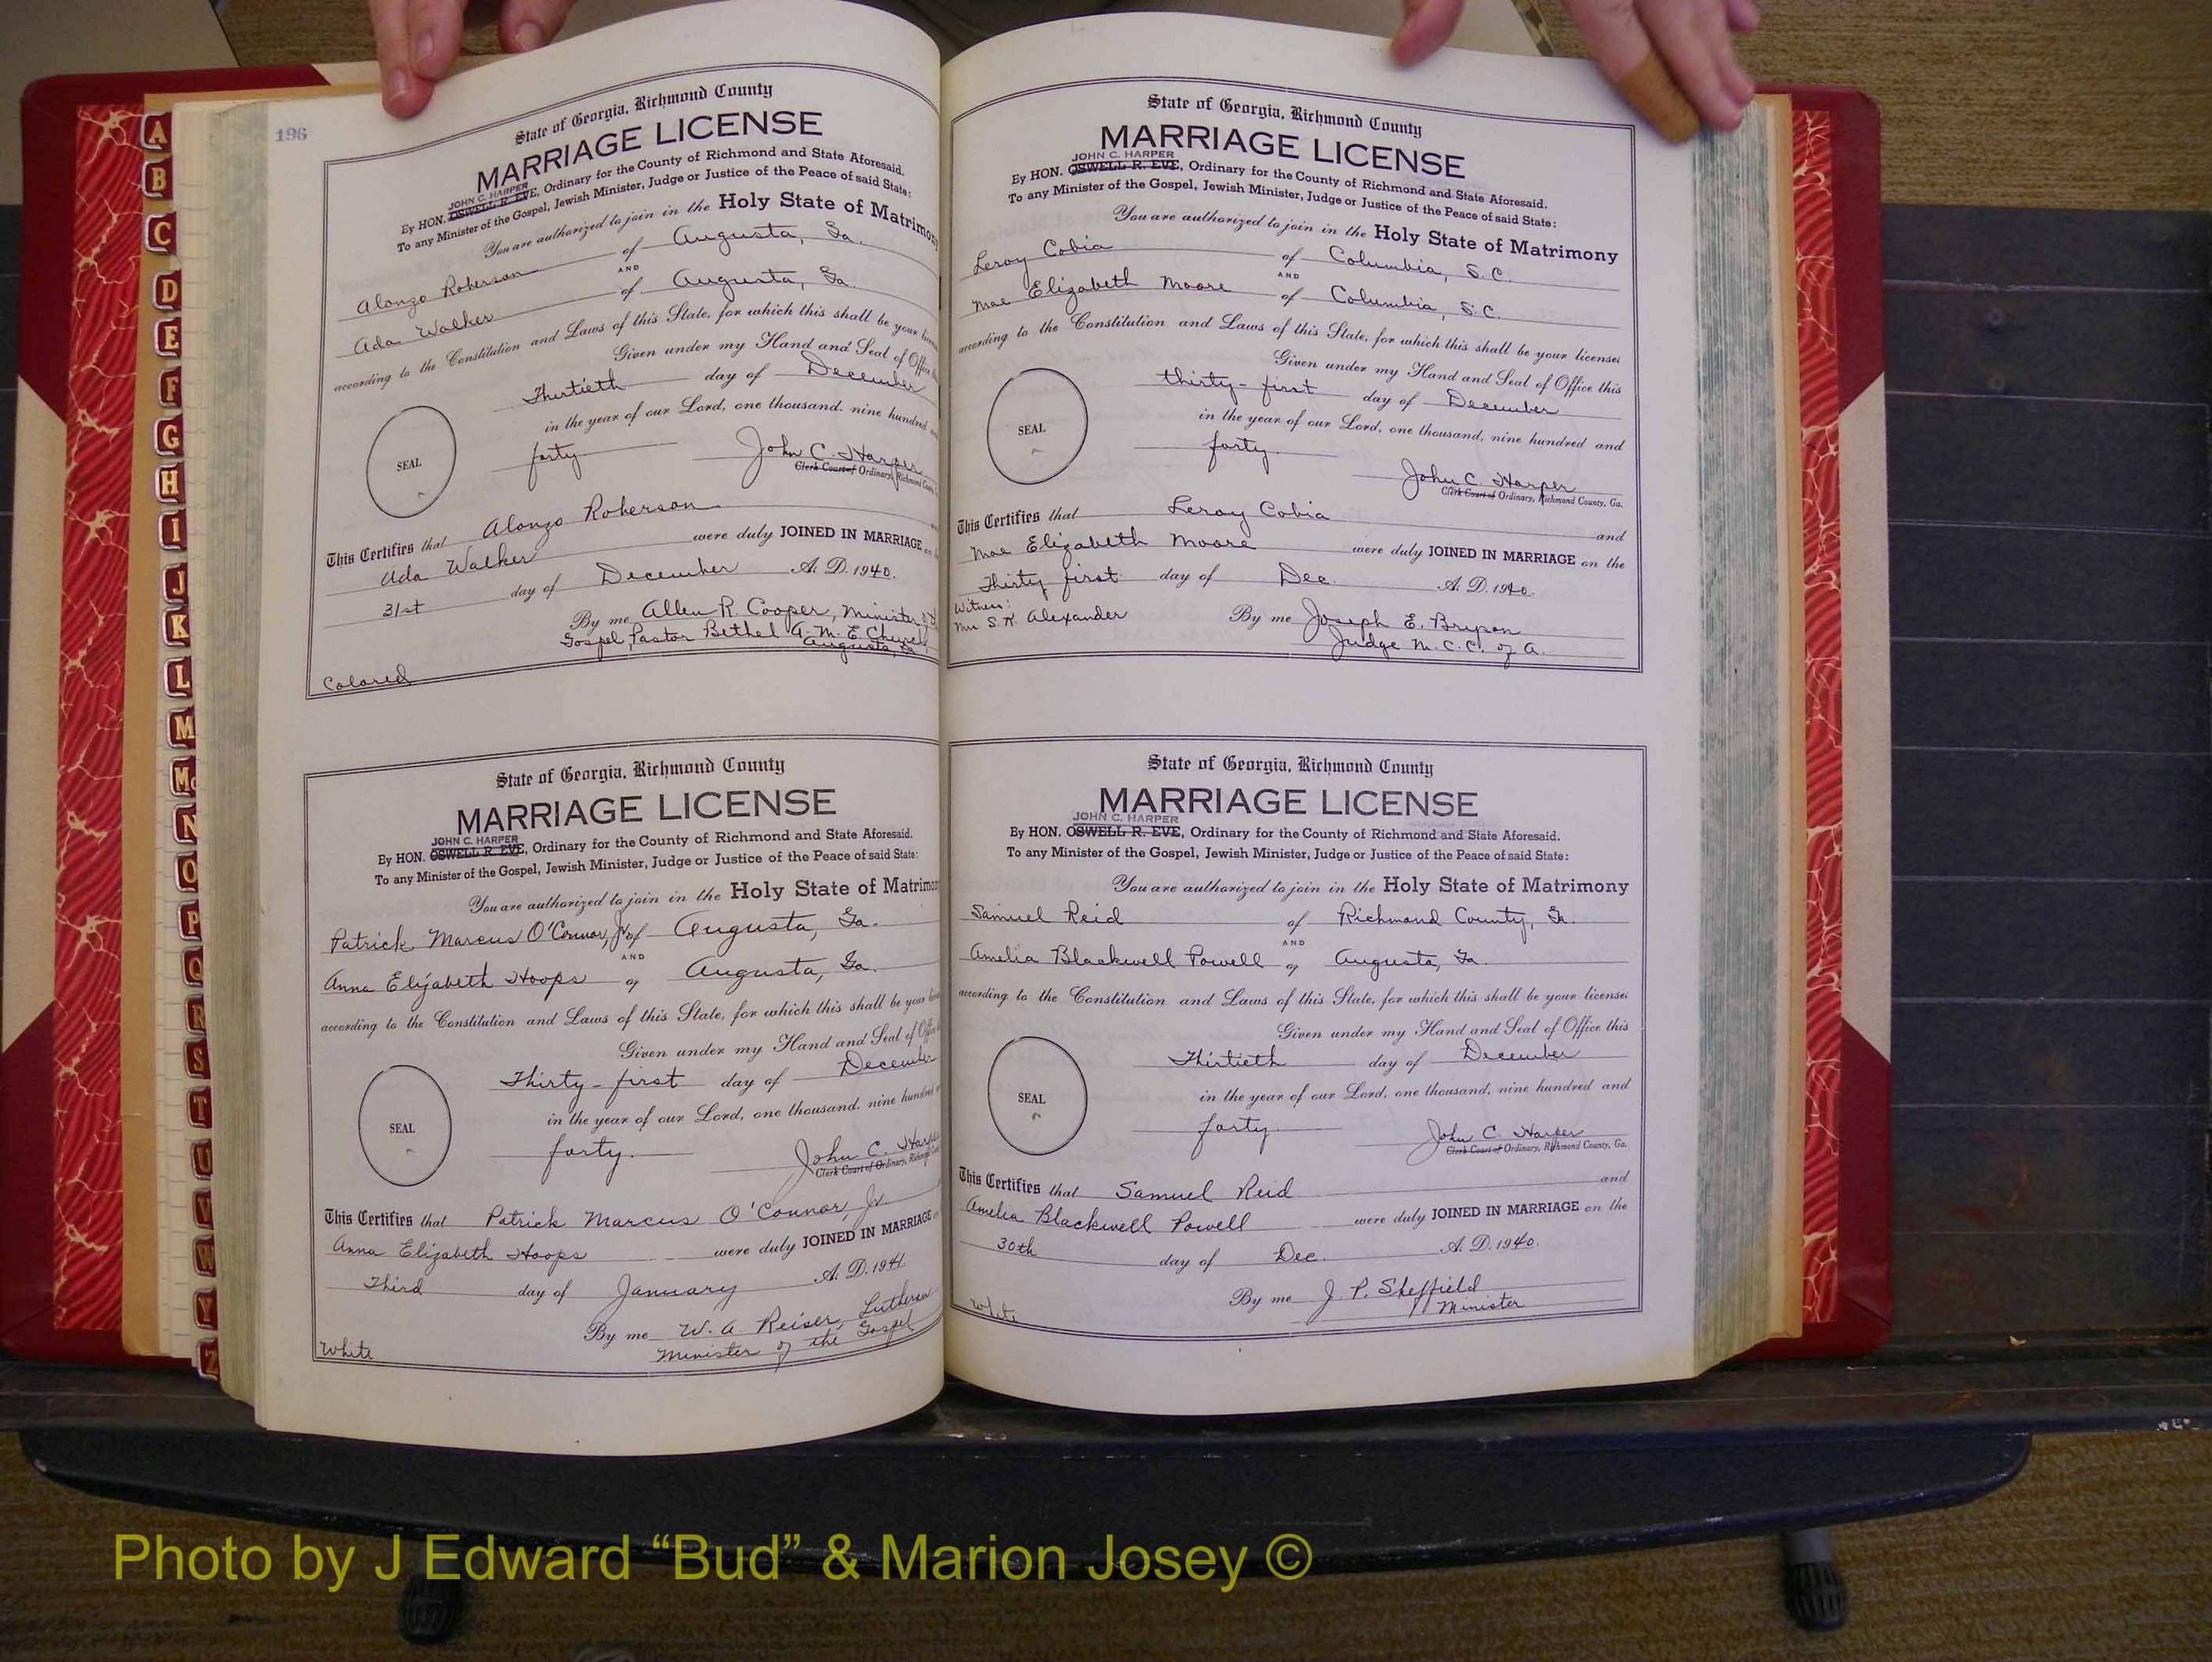 196
State of Georgia, Richmond County
MARRIAGE LICENSE
JOHN C. HARPER
By HON. OSWELL R. EVE, Ordinary for the County of Richmond and State Aforesaid.
To any Minister of the Gospel, Jewish Minister, Judge or Justice of the Peace of said State:
You are authorized to join in the Holy State of Matrimony
Alonzo Roberson of Augusta, Ga.
AND
Ada Walker of Augusta, Ga.
according to the Constitution and Laws of this State, for which this shall be your
Given under my Hand and Seal of Office
Thirtieth day of December
in the year of our Lord, one thousand, nine hundred
forty
John C. Harper
Clerk Court of Ordinary, Richmond County
SEAL
This Certifies that Alonzo Roberson
Ada Walker were duly JOINED IN MARRIAGE
31st day of December A. D. 1940.
By me Allen R. Cooper, Minister of
Gospel, Pastor Bethel A. M. E. Church
Augusta, Ga
Colored
State of Georgia, Richmond County
MARRIAGE LICENSE
JOHN C. HARPER
By HON. OSWELL R. EVE, Ordinary for the County of Richmond and State Aforesaid.
To any Minister of the Gospel, Jewish Minister, Judge or Justice of the Peace of said State:
You are authorized to join in the Holy State of Matrimo
Patrick Marcus O'Connor, Jr of Augusta, Ga.
AND
Anna Elizabeth Hoops of Augusta, Ga.
according to the Constitution and Laws of this State, for which this shall be your
Given under my Hand and Seal of
Thirty-first day of December
in the year of our Lord, one thousand, nine hundred
forty.
John C. Harper
Clerk Court of Ordinary,
SEAL
This Certifies that Patrick Marcus O'Connor, Jr.
Anna Elizabeth Hoops were duly JOINED IN MARRIAGE
Third day of January A. D. 1941.
By me W. A. Reiser, Lutheran
Minister of the Gospel
White
State of Georgia, Richmond County
MARRIAGE LICENSE
JOHN C. HARPER
By HON. OSWELL R. EVE, Ordinary for the County of Richmond and State Aforesaid.
To any Minister of the Gospel, Jewish Minister, Judge or Justice of the Peace of said State:
You are authorized to join in the Holy State of Matrimony
Leroy Cobia of Columbia, S.C.
AND
Mae Elizabeth Moore of Columbia, S.C.
according to the Constitution and Laws of this State, for which this shall be your license:
Given under my Hand and Seal of Office this
thirty-first day of December
in the year of our Lord, one thousand, nine hundred and
forty.
John C. Harper
Clerk Court of Ordinary, Richmond County, Ga.
SEAL
This Certifies that Leroy Cobia and
Mae Elizabeth Moore were duly JOINED IN MARRIAGE on the
Thirty first day of Dec. A. D. 1940.
Witness:
Mrs S. H. Alexander
By me Joseph E. Bryson
Judge M. C. C. of A.
State of Georgia, Richmond County
MARRIAGE LICENSE
JOHN C. HARPER
By HON. OSWELL R. EVE, Ordinary for the County of Richmond and State Aforesaid.
To any Minister of the Gospel, Jewish Minister, Judge or Justice of the Peace of said State:
You are authorized to join in the Holy State of Matrimony
Samuel Reid of Richmond County, Ga.
AND
Amelia Blackwell Powell of Augusta, Ga.
according to the Constitution and Laws of this State, for which this shall be your license:
Given under my Hand and Seal of Office this
Thirtieth day of December
in the year of our Lord, one thousand, nine hundred and
forty.
John C. Harper
Clerk Court of Ordinary, Richmond County, Ga.
SEAL
This Certifies that Samuel Reid and
Amelia Blackwell Powell were duly JOINED IN MARRIAGE on the
30th day of Dec. A. D. 1940.
By me J. P. Sheffield
Minister
White
A
B
C
D
E
F
G
H
I
J
K
L
M
Mc
N
O
P
Q
R
S
T
U
V
W
Y
Z
Photo by J Edward “Bud” & Marion Josey ©